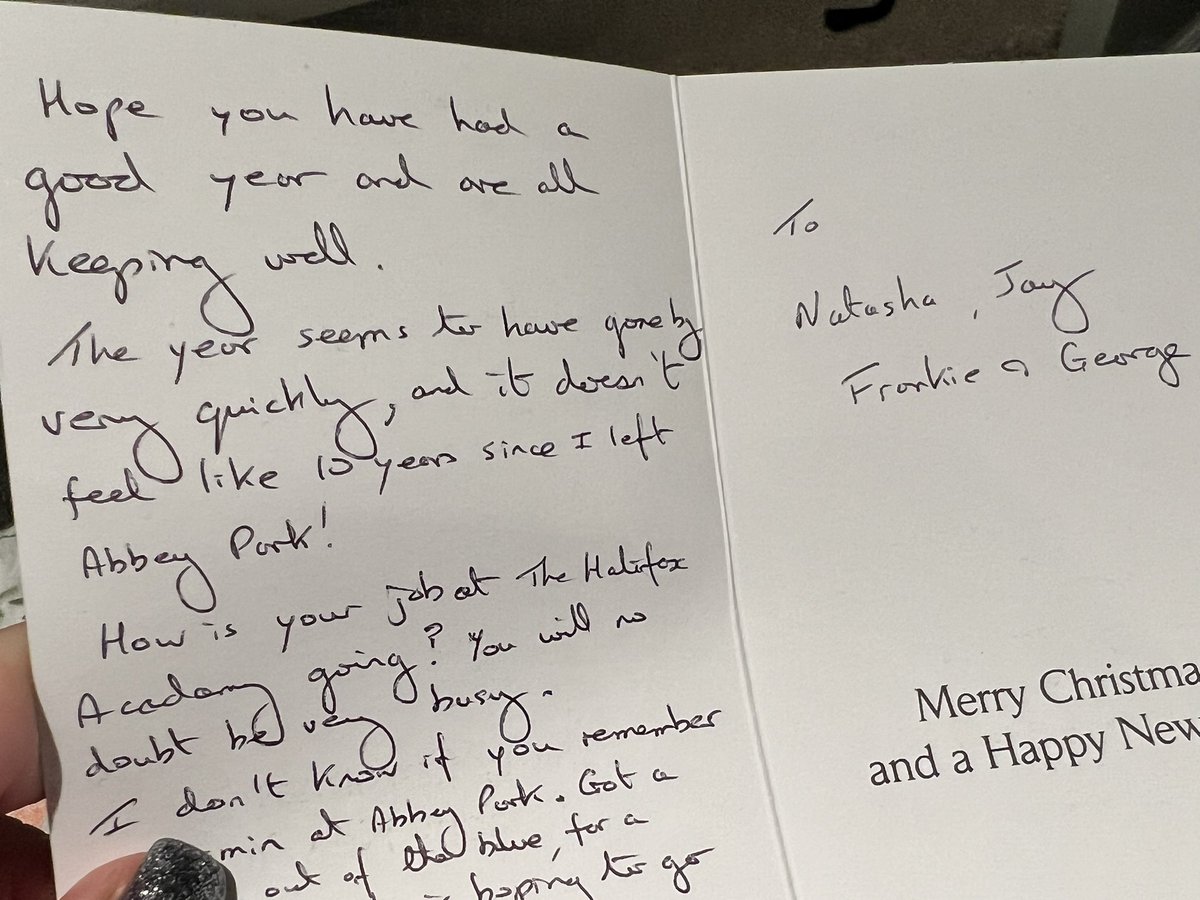 Hope you have had a
good year and are all
Keeping well.
The year seems to have gone by
very quickly, and it doesn't
feel like 10 years since I left
Abbey Park!
How is your job at The Halifax
Academy going? You will no
doubt be very busy.
I don't know if you remember
min at Abbey Park. Got a
out of the blue, for a
hoping to go
To
Natasha, Jay
Frankie & George
Merry Christma
and a Happy New